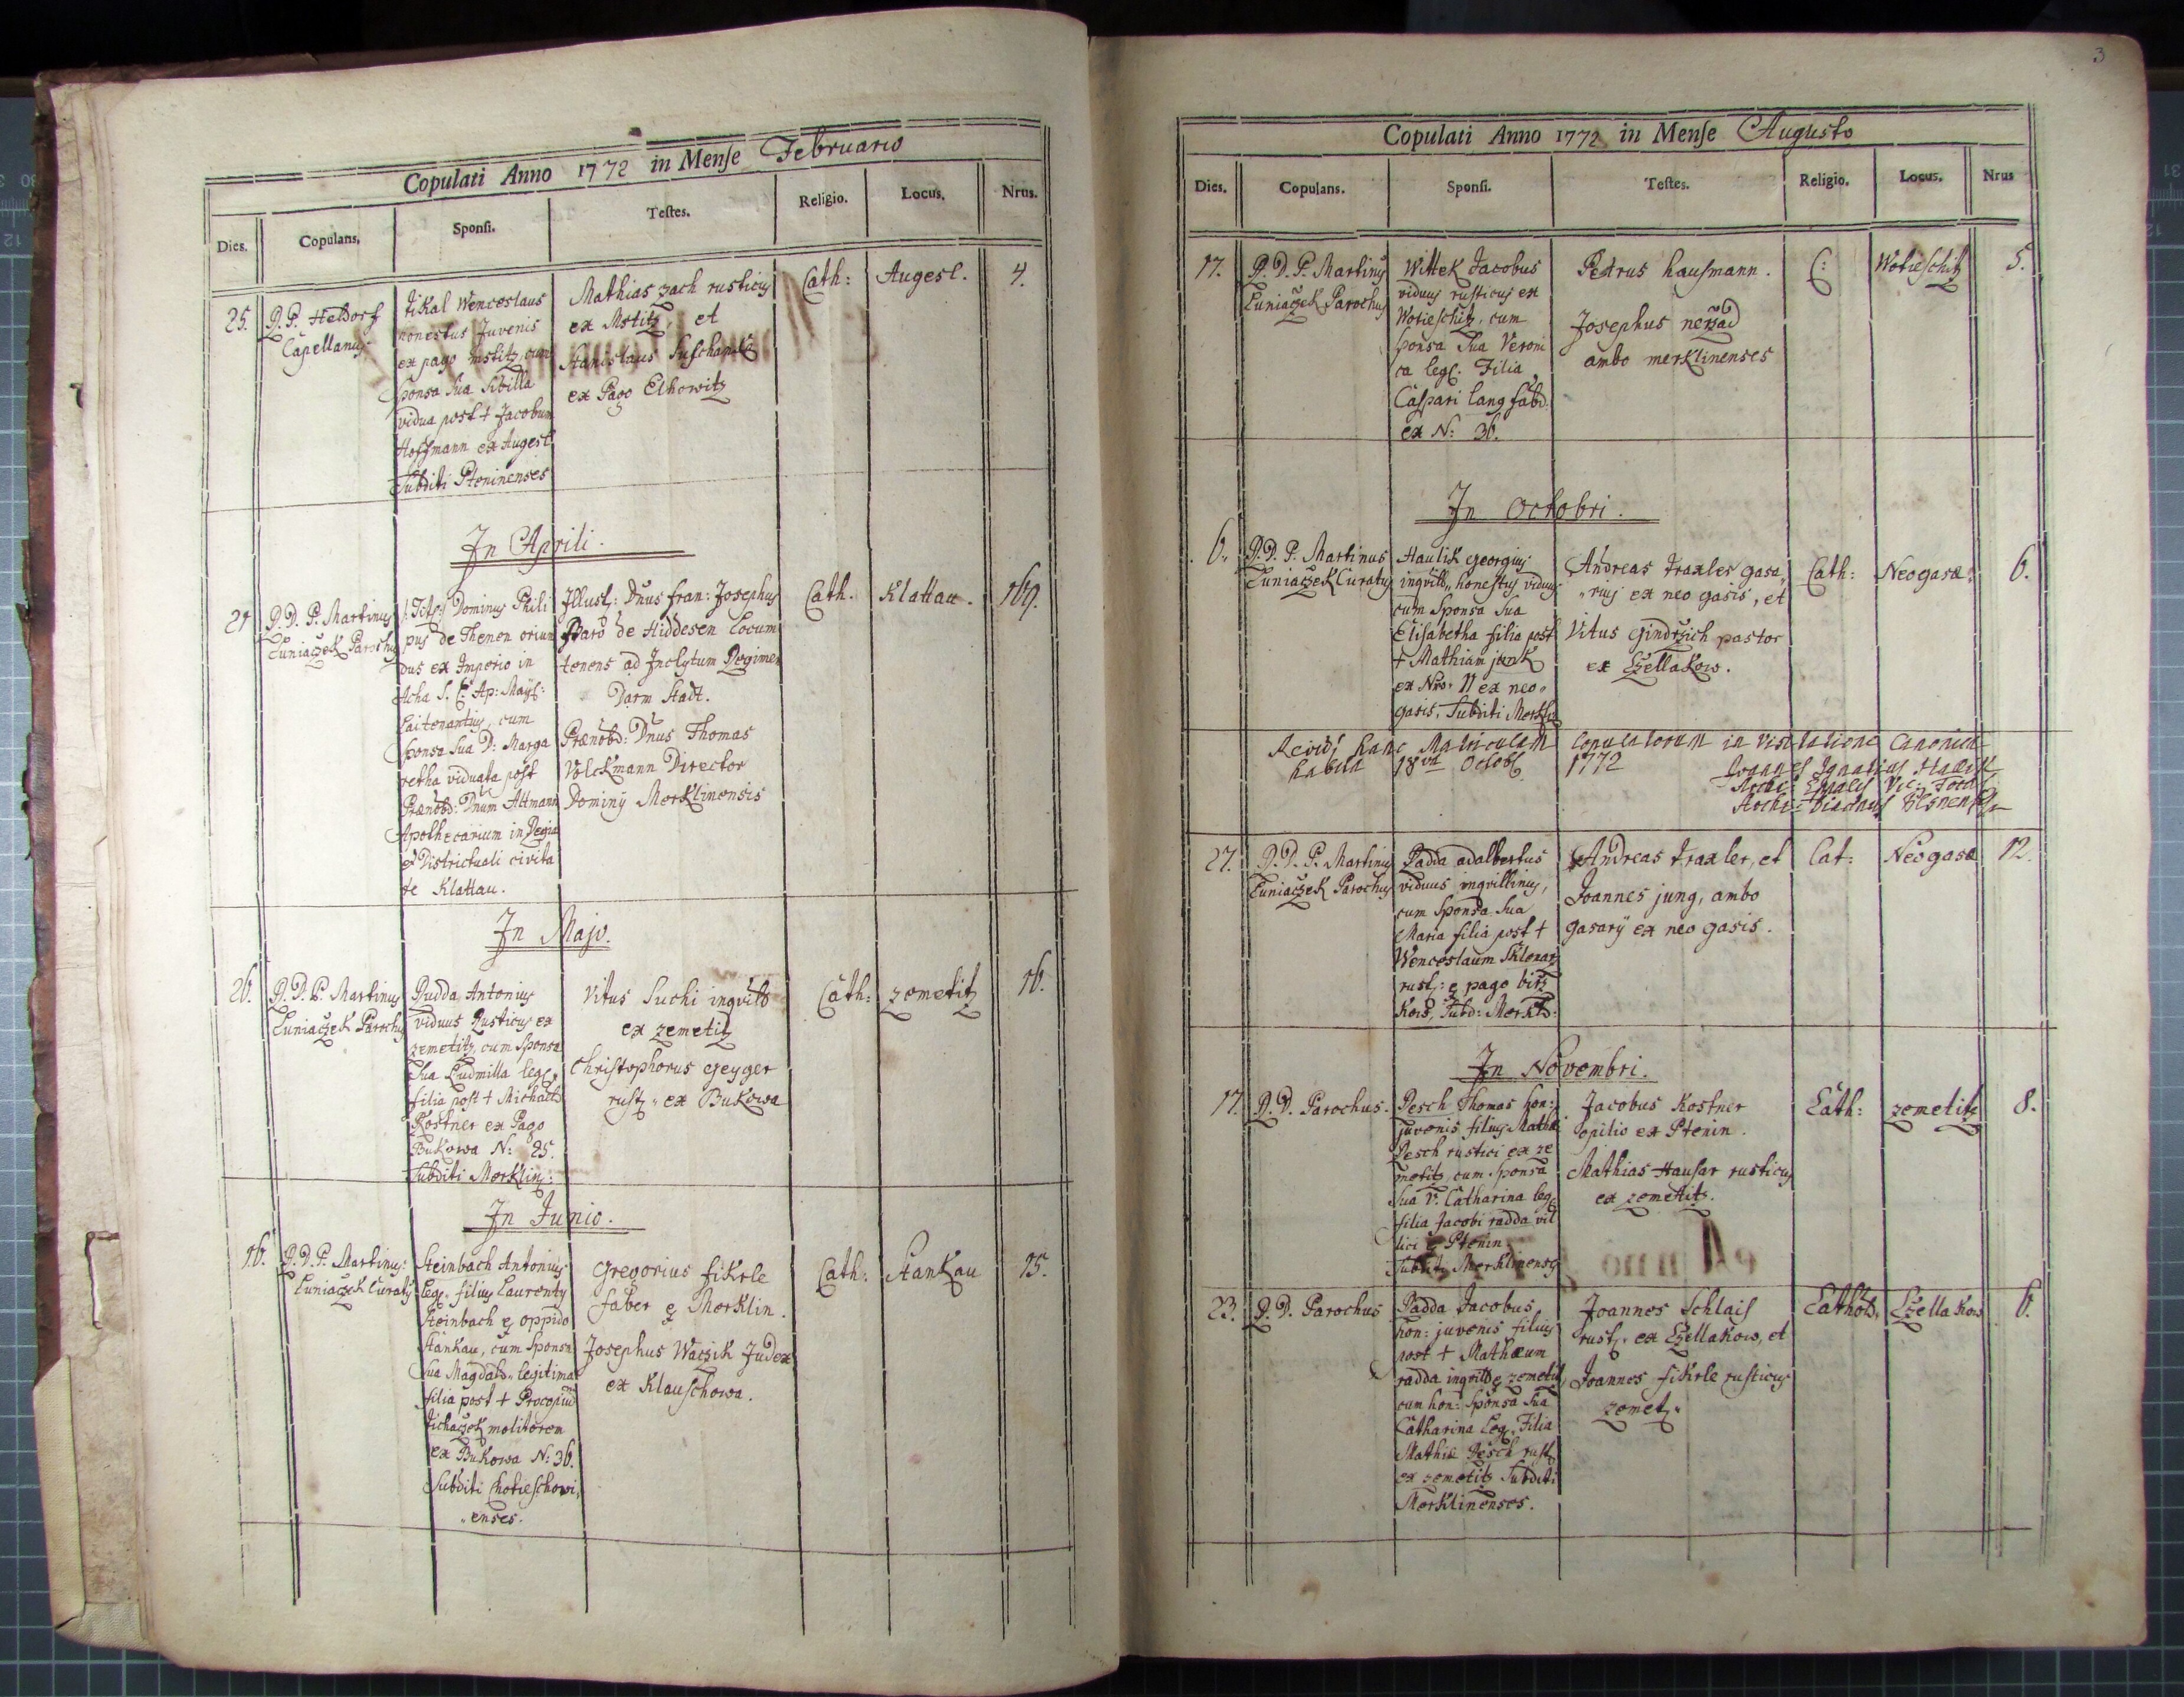 Copulati Anno 1772 in Mense Februario
Dies. Copulans. Sponsi. Testes. Religio. Locus. Nrus.
25.
P. P. Heldorf
Capellanus
Tikal Wenceslaus
honestus Juvenis
ex pago Mstitz, cum
sponsa Sua Sibilla
vidua post + Jacobum
Hoffmann ex Augest
Subditi Pteninenses
Mathias zach rusticus
ex Mstitz, et
Stanislaus
ex Pago Elhowitz
Cath:
Augesl.
4.
In Aprili.
21
P. D. P. Martinus
Luniaczek Parochus
Dominus Phili
pus de Thenen oriun
dus ex Imperio in
Acha S. C. Ap: Mays:
Laitenantius, cum
sponsa Sua D: Marga
retha viduata post
Prænob: Dnum Altmann
Apothecarium in Regia
et Districtuali civita
te Klattau.
Illust: Dnus Fran: Josephus
Baro de Hiddesen Locum
tenens ad Inclytum Regimen
Darm Stadt.
Prænob: Dnus Thomas
Volckmann Director
Dominÿ Merklinensis
Cath.
Klattau.
169.
In Majo.
26.
P. D. P. Martinus
Luniaczek Parochus
Rudda Antonius
viduus Rusticus ex
zemetitz, cum Sponsa
Sua Ludmilla leg.
filia post + Michael
Kostner ex Pago
Bukowa N: 25.
Subditi Merklin:
Vitus Suchi inqvil
ex zemetitz
Christophorus geyger
rust. ex Bukowa
Cath:
zemetitz
16.
In Junio.
16.
P. D. P. Martinus
Luniaczek Curatus
Steinbach Antonius
leg. filius Laurenty
Steinbach ex oppido
Stankau, cum Sponsa
Sua Magdal. legitima
filia post + Procopium
Tichaczek molitorem
ex Bukowa N: 36.
Subditi Chotieschowi,
"enses.
Gregorius fikrle
faber ex Merklin.
Josephus Waczik Judex
ex Klauschowa.
Cath:
Stankau
15.
3
Copulati Anno 1772 in Mense Augusto
Dies. Copulans. Sponsi. Testes. Religio. Locus. Nrus
17.
P. D. P. Martinus
Luniaczek Parochus
Wittek Jacobus
viduus rusticus ex
Wotieschitz, cum
sponsa Sua Veroni
ca leg. Filia
Caspari Lang
ex N: 36.
Petrus hausmann.
Josephus nerzad
ambo merklinenses
C:
Wotieschitz
5.
In Octobri.
6.
P. D. P. Martinus
Luniaczek Curatus
Haulik georgius
inqvill, honestus viduus
cum Sponsa Sua
Elisabetha filia post
+ Mathiam junk
ex Nro. 11 ex neo"
gasis. Subditi
Andreas Traxler gasa"
"rius ex neo gasis, et
Vitus Gindrzich pastor
ex Czellakow.
Cath:
Neogasæ:
6.
hanc Matriculam Copulatorum in Visitatione Canonica
habita 18va Octob 1772 Joannes Ignatius
27.
P. D. P. Martinus
Luniaczek Parochus
Radda adalbertus
viduus inqvillinus,
cum Sponsa Sua
Maria filia post +
Wenceslaum Sklenarz
rust: ex pago
Subd: Merkl:
Andreas Traxler, et
Joannes jung, ambo
gasarÿ ex neo gasis.
Cat:
Neogasæ
12.
In Novembri.
17.
P. D. Parochus.
Pesch Thomas hon:
juvenis filius Mathæ
Pesch rustici ex ze
metitz cum Sponsa
Sua V: Catharina leg.
filia Jacobi radda vil
lici ex Ptenin
Subditi Merklinenses
Jacobus Kostner
opilio ex Ptenin.
Mathias Hausar rusticus
ex zemetitz.
Cath:
zemetitz
8.
23.
P. D. Parochus
Radda Jacobus
hon: juvenis filius
post + Mathæum
radda inqvil ex zemetitz
cum hon: Sponsa Sua
Catharina Leg. Filia
Mathiæ Pesch rust
ex zemetitz Subditi
Merklinenses.
Joannes Schlais
rust. ex Czellakow, et
Joannes fikrle rusticus
zemet.
Cathol.
Czellakow
6.